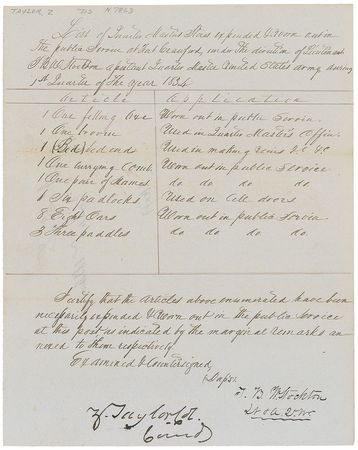 TAYLOR Z DS N 7863
List of Quarter Masters Stores expended & worn out in
the public Service at Fort Crawford, under the direction of Lieutenant
T B W Stockton Quarter Master United States Army during
1st Quarter of the year 1834
Article Application
1 One felling Axe Worn out in public Service
1 One broom Used in Quarter Master's Office
1 bed cord Used in making
1 One currying Comb Worn out in public Service
1 One pair of Hames do do do do
6 Six padlocks Used on Cell doors
8 Eight Oars Worn out in public Service
3 Three paddles do do do do
I certify that the Articles above enumerated have been
necessarily expended & worn out in the public Service
at this post as indicated by the marginal remarks an
nexed to them respectively
Examined & Countersigned
T. B. W. Stockton
Z. Taylor Col.
Comd